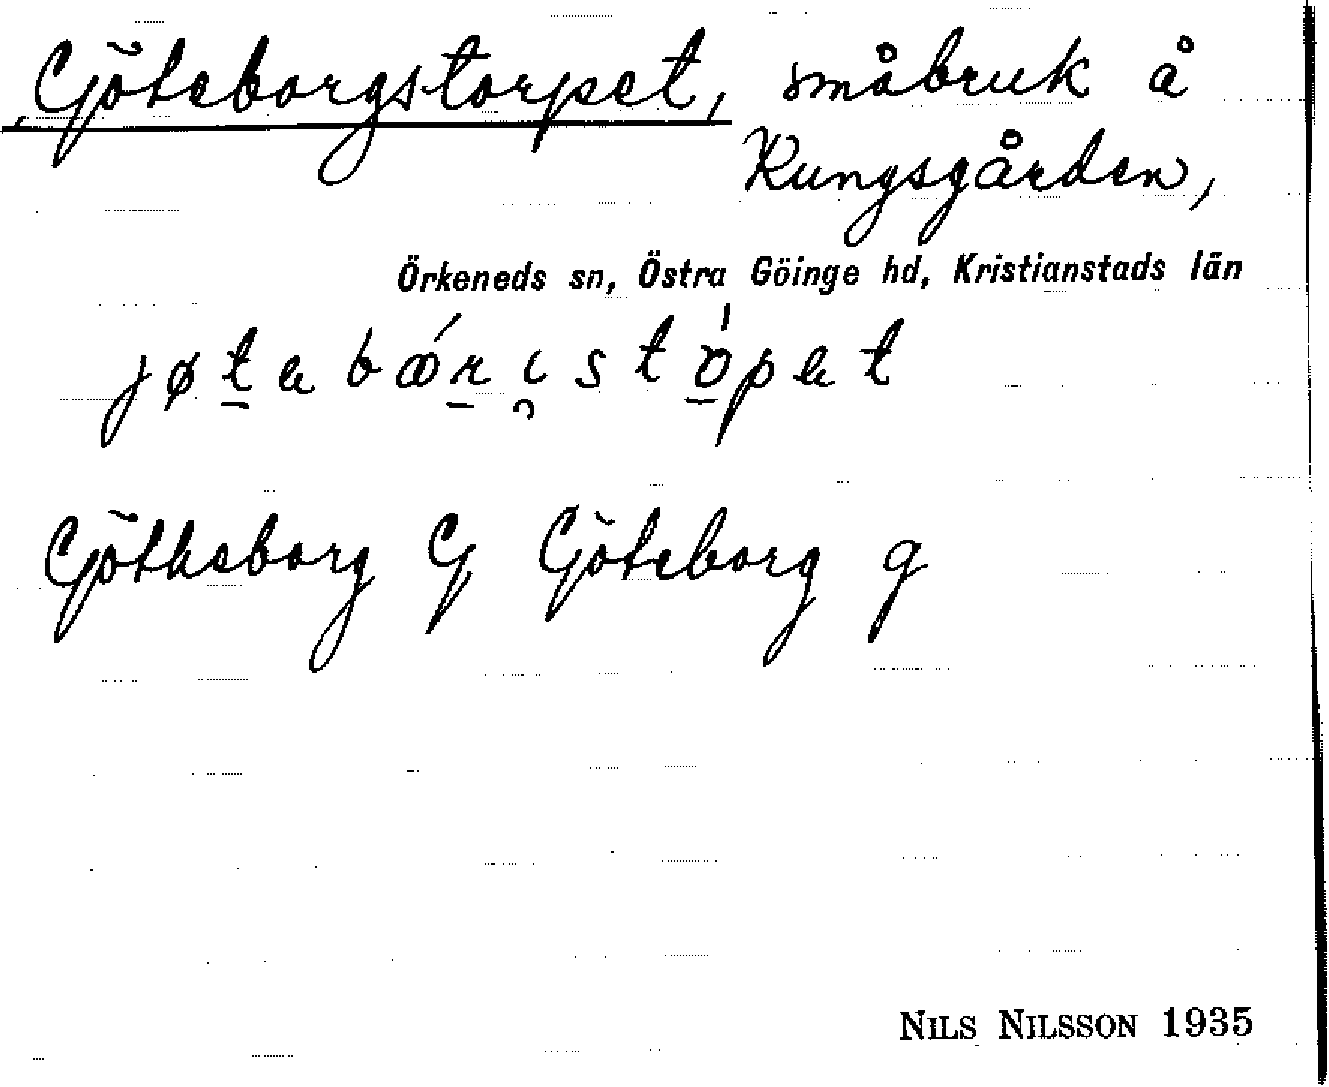 Göteborgstorpet, småbruk å
Kungsgården,
Örkeneds sn, Östra Göinge hd, Kristianstads län
Götheborg G Göteborg g
NILS NILSSON 1935